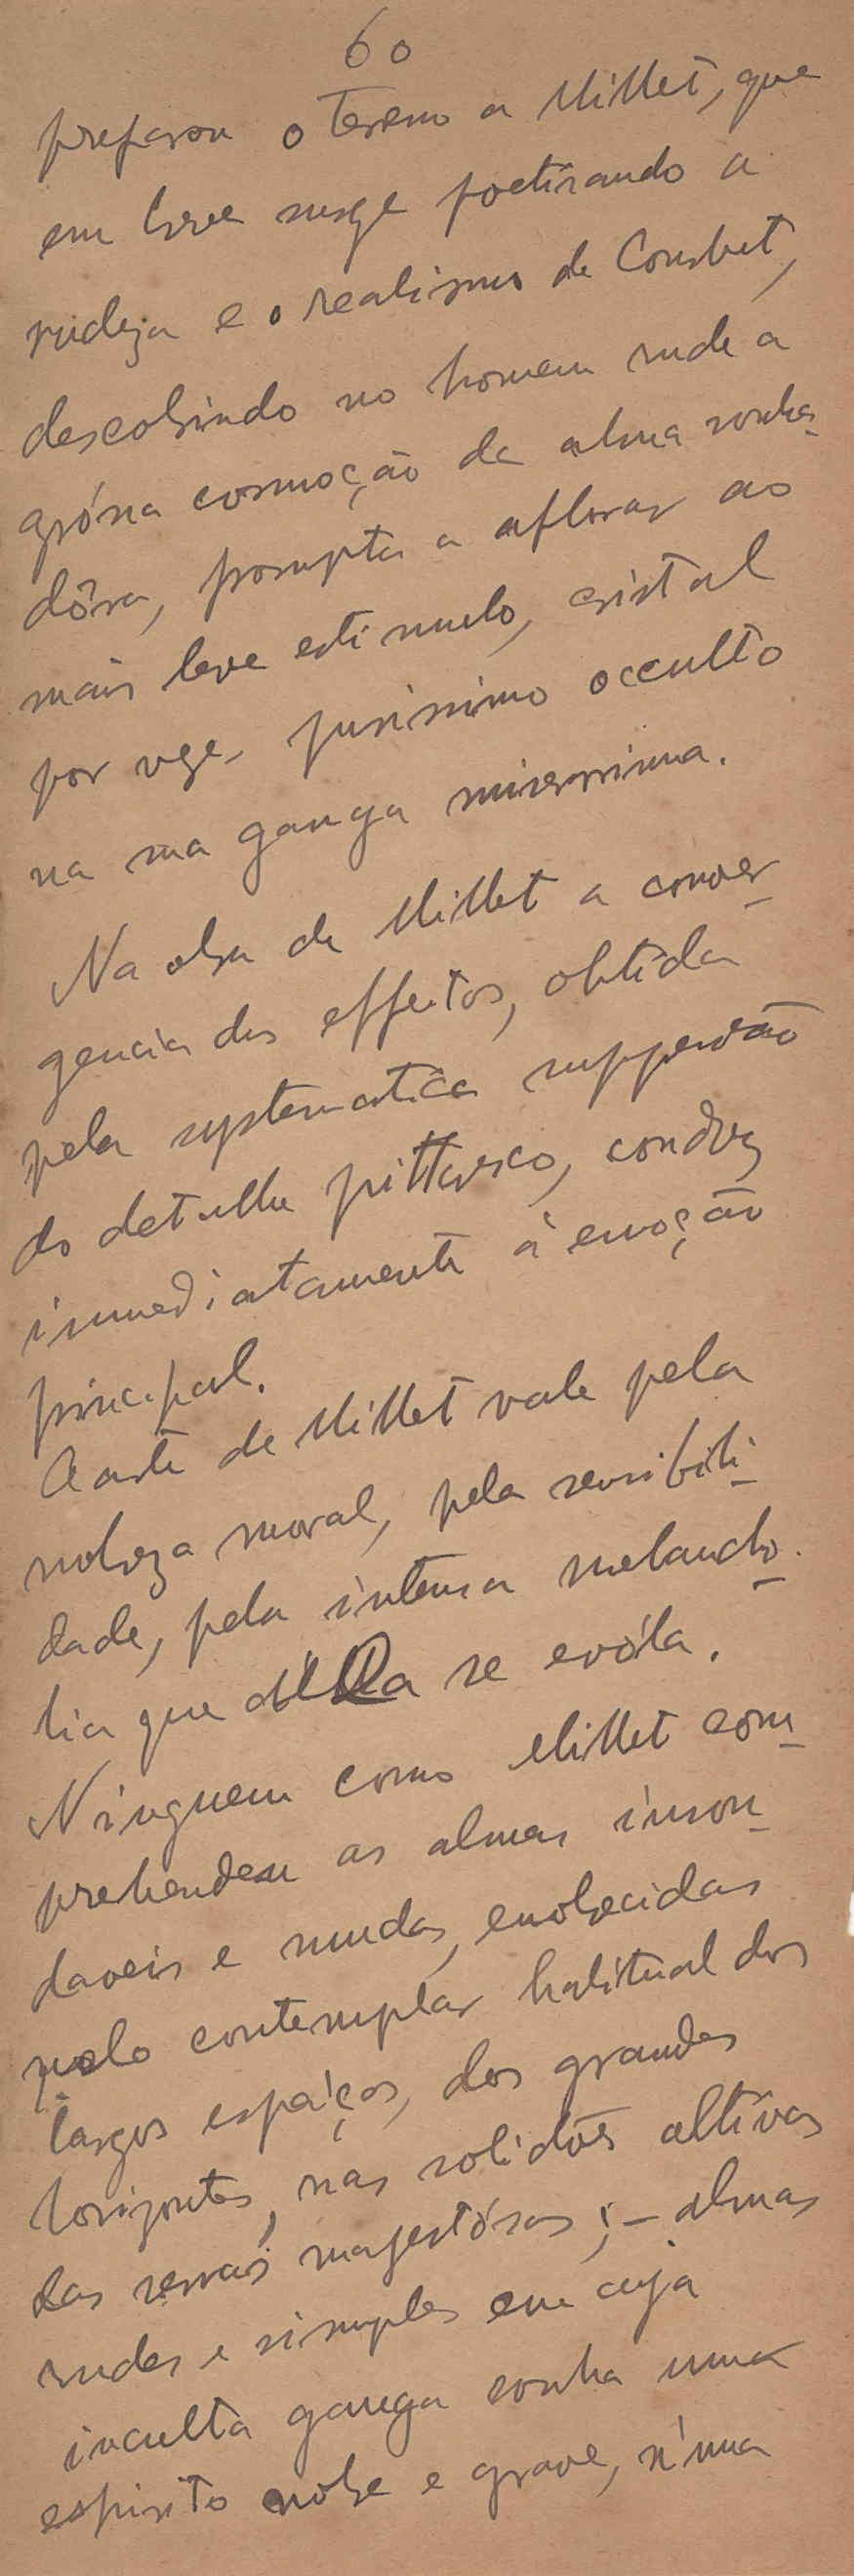 60
preparou o terreno a Millet, que
em breve surge poetisando a
rudeza e o realismo de Courbet,
descobrindo no homem rude a
grósia commoção da alma sonha-
dôra, prompta a aflorar ao
mais leve estimulo, cristal
por veze purissimo occulto
na sua ganga miserrima.
Na obra de Millet a conver-
gencia dos effeitos, obtida
pela systematica suppressão
do detalhe pittoresco, conduz
immediatamente à emoção
principal.
A arte de Millet vale pela
nobreza moral, pela sensibili-
dade, pela intensa melancho-
lia que d'ella se evóla.
Ninguem como Millet com-
prehendeu as almas inson-
daveis e mudas, enobrecidas
pelo contemplar habitual dos
largos espáços, dos grandes
horizontes, nas solidões altivas
das serras magestósas; – almas
rudes e simples em cuja
inculta ganga sonha uma
espirito nobre e grave, n'uma